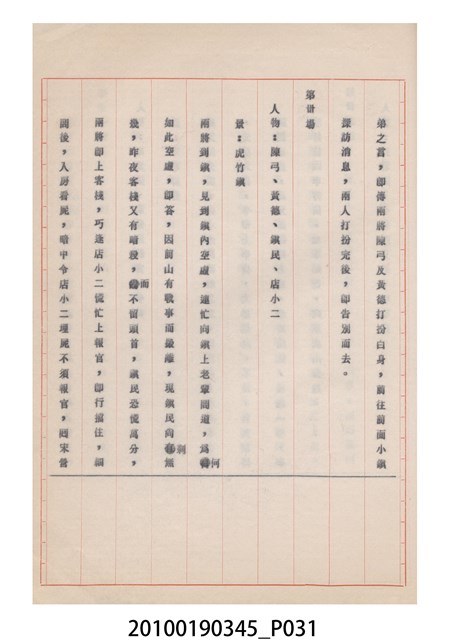 弟之言，即傳兩將陳弓及黃德打扮白身，前往前面小鎮
探訪消息，兩人打扮完後，即告別而去。
第卅場
人物：陳弓、黃德、鎮民、店小二
景：虎竹鎮
兩將到鎮，見到鎮內空虛，連忙向鎮上老輩問道，為何
如此空虛，即答，因前山有戰事而疏離，現鎮民尚剩無
幾，昨夜客棧又有暗殺，而不留頭首，鎮民恐慌萬分，
兩將即上客棧，巧逢店小二慌忙上報官，即行擋住，細
問後，入房看屍，暗中令店小二埋屍不須報官，因宋營
20100190345_P031